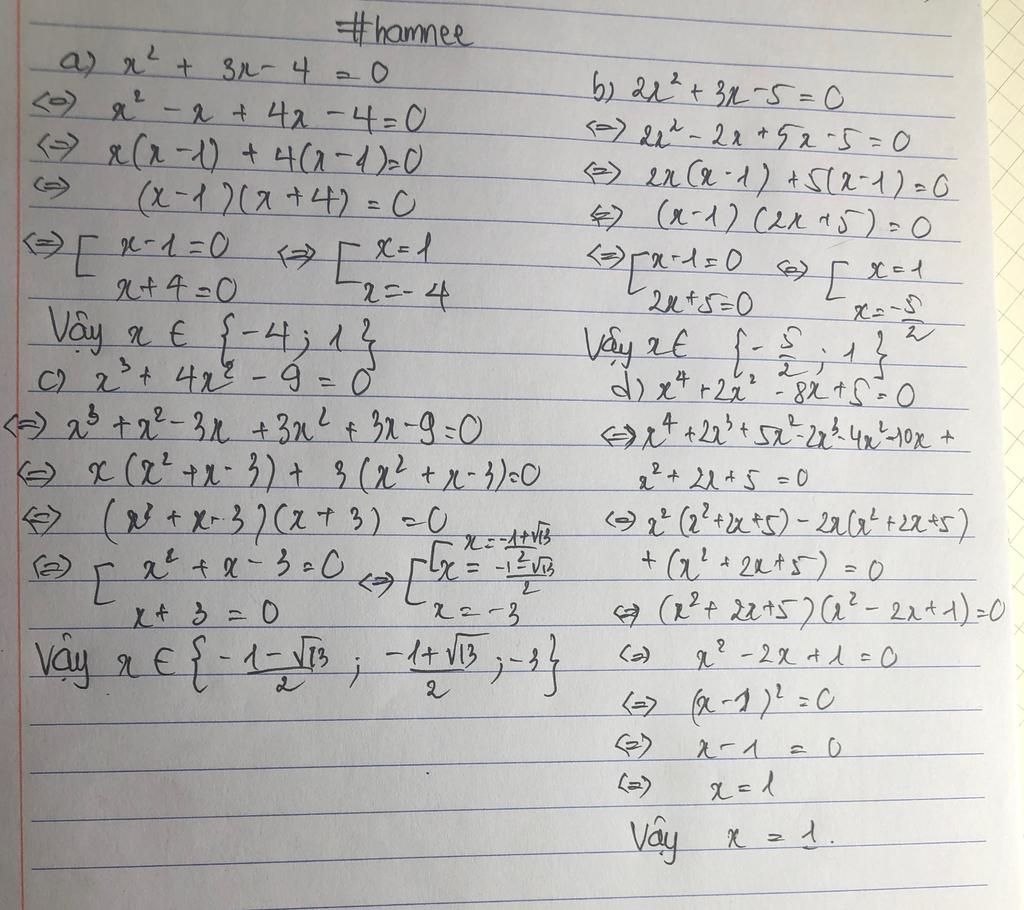 #hamnee
a) x² + 3x - 4 = 0
<=> x² - x + 4x - 4 = 0
<=> x(x-1) + 4(x-1)=0
<=> (x-1)(x+4) = 0
<=> [ x-1=0 <=> [ x=1
x+4=0 x=-4
Vậy x ∈ {-4; 1}
c) x³ + 4x² - 9 = 0
<=> x³ + x² - 3x + 3x² + 3x - 9 = 0
<=> x(x² + x - 3) + 3(x² + x - 3)=0
<=> (x² + x - 3)(x + 3) = 0
<=> [ x² + x - 3 = 0 <=> [ [ x = (-1+√13)/2
x = (-1-√13)/2
x + 3 = 0 x = -3
Vậy x ∈ { (-1-√13)/2 ; (-1+√13)/2 ; -3 }
b) 2x² + 3x - 5 = 0
<=> 2x² - 2x + 5x - 5 = 0
<=> 2x(x-1) + 5(x-1) = 0
<=> (x-1)(2x+5) = 0
<=> [ x-1=0 <=> [ x=1
2x+5=0 x = -5/2
Vậy x ∈ {-5/2 ; 1}
d) x⁴ + 2x² - 8x + 5 = 0
<=> x⁴ + 2x³ + 5x² - 2x³ - 4x² - 10x +
x² + 2x + 5 = 0
<=> x²(x² + 2x + 5) - 2x(x² + 2x + 5)
+ (x² + 2x + 5) = 0
<=> (x² + 2x + 5)(x² - 2x + 1) = 0
<=> x² - 2x + 1 = 0
<=> (x-1)² = 0
<=> x - 1 = 0
<=> x = 1
Vậy x = 1.